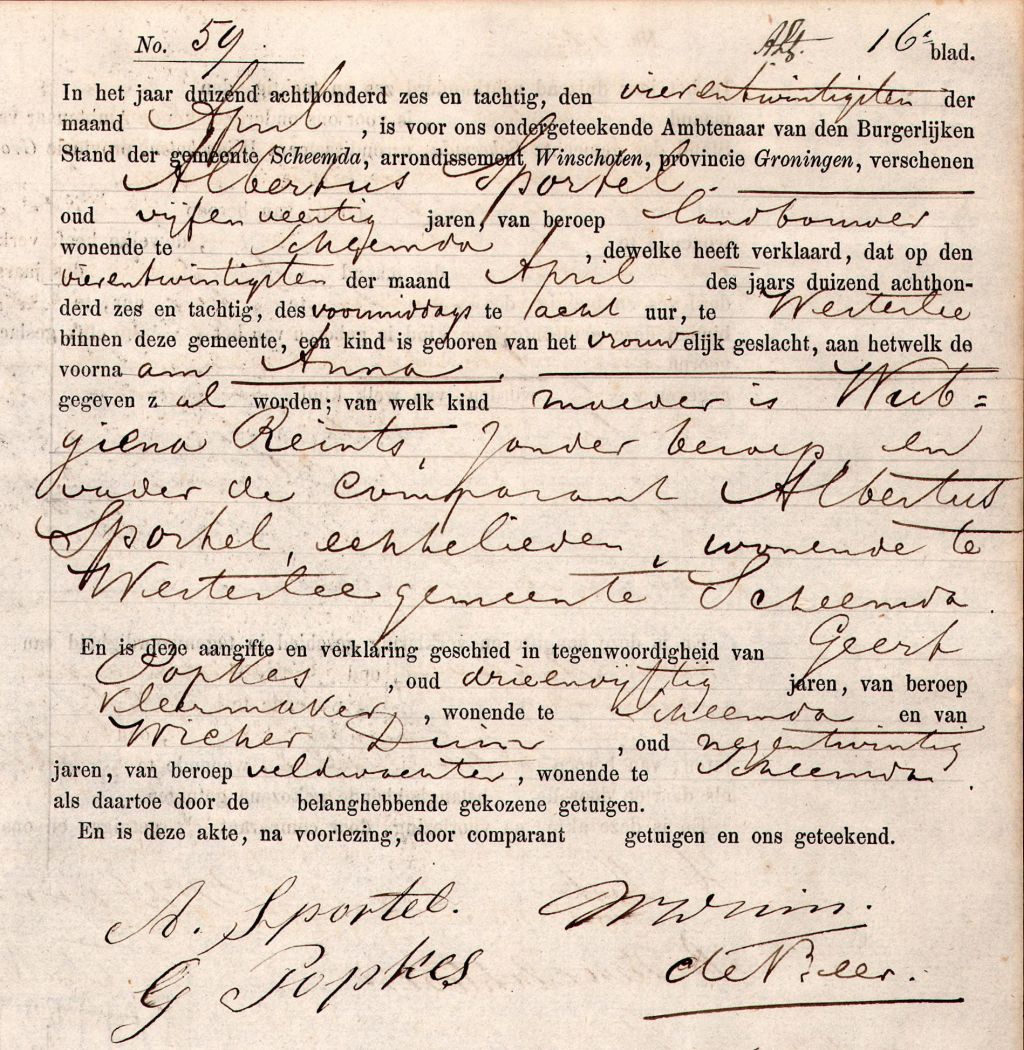 No. 59. 16e blad.
In het jaar duizend achthonderd zes en tachtig, den vierentwintigsten der
maand April, is voor ons ondergeteekende Ambtenaar van den Burgerlijken
Stand der gemeente Scheemda, arrondissement Winschoten, provincie Groningen, verschenen
Albertus Sportel.
oud vijfenveertig jaren, van beroep landbouwer
wonende te Scheemda, dewelke heeft verklaard, dat op den
vierentwintigsten der maand April des jaars duizend achthon-
derd zes en tachtig, des voormiddags te acht uur, te Westerlee
binnen deze gemeente, een kind is geboren van het vrouwelijk geslacht, aan hetwelk de
voorna am Anna.
gegeven z al worden; van welk kind moeder is Wub=
giena Reints, zonder beroep, en
vader de comparant Albertus
Sportel, echtelieden, wonende te
Westerlee gemeente Scheemda.
En is deze aangifte en verklaring geschied in tegenwoordigheid van Geert
Popkes, oud drieenvijftig jaren, van beroep
kleermaker, wonende te Scheemda en van
Wicher Duin, oud negentwintig
jaren, van beroep veldwachter, wonende te Scheemda
als daartoe door de belanghebbende gekozene getuigen.
En is deze akte, na voorlezing, door comparant getuigen en ons geteekend.
A. Sportel. W Duin.
G Popkes de Beer.